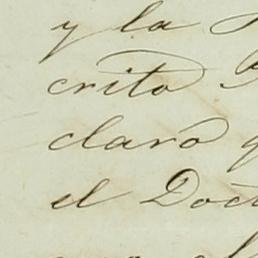 y la
crito
claro
el Doct